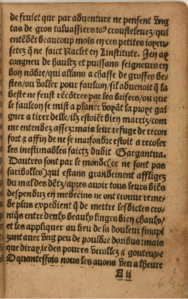 de seulet que par adventure ne pensent Eng
tas de gros talvassiers tous croustelevez, qui
entendent beaucoup moins en ces petites ioyeu
setez que ne faict Raclet en Linstitute. Jen ay
congneu de haultz et puissans seigneurs en
bon nombre, qui allans a chasse de grosses be-
stes, ou voller pour faulcon, sil advenoit q̃ la
beste ne feust rencontree par les brisees, ou que
le faulcon se mist a planer voyant la proye gai
gner a tire desle, ilz estoient bien marriz, com
me entendez assez: mais leur refuge de recon
fort, affin de ne se morfondre, estoit a recoler
les inestimables faictz dudit Gargantua.
Daultres sont par le monde (ce ne sont pas
faribolles) qui estans grandement affligez
du mal des dētz, apres avoir tous leurs biēs
despenduz en medecins ne ont trouve reme-
de plus expedient q̃ de mettre lesdictes cro-
nicques entre deux beaulx linges bien chaulx,
et les appliquer au lieu de la douleur sinapi
zant avec Ung peu de pouldre doribus: mais
que diray ie des pauvres verollez et goutteux
O quantesfois nous les avons veu a lheure
A ii